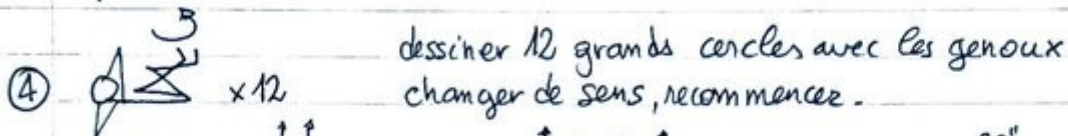 dessiner 12 grands cercles avec les genoux
④ x12 changer de sens, recommencer.